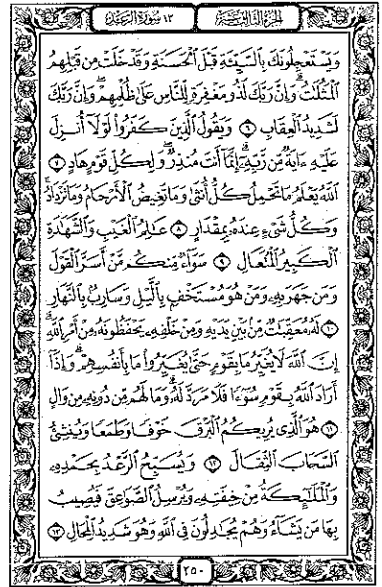 الجزء الثالث عشر
١٣ سورة الرعد
وَيَسْتَعْجِلُونَكَ بِالسَّيِّئَةِ قَبْلَ الْحَسَنَةِ وَقَدْ خَلَتْ مِن قَبْلِهِمُ
الْمَثُلَاتُ وَإِنَّ رَبَّكَ لَذُو مَغْفِرَةٍ لِّلنَّاسِ عَلَىٰ ظُلْمِهِمْ وَإِنَّ رَبَّكَ
لَشَدِيدُ الْعِقَابِ ٦ وَيَقُولُ الَّذِينَ كَفَرُوا لَوْلَا أُنزِلَ
عَلَيْهِ ءَايَةٌ مِّن رَّبِّهِ إِنَّمَا أَنتَ مُنذِرٌ وَلِكُلِّ قَوْمٍ هَادٍ ٧
اللَّهُ يَعْلَمُ مَا تَحْمِلُ كُلُّ أُنثَىٰ وَمَا تَغِيضُ الْأَرْحَامُ وَمَا تَزْدَادُ
وَكُلُّ شَيْءٍ عِندَهُ بِمِقْدَارٍ ٨ عَالِمُ الْغَيْبِ وَالشَّهَادَةِ
الْكَبِيرُ الْمُتَعَالِ ٩ سَوَاءٌ مِّنكُم مَّنْ أَسَرَّ الْقَوْلَ
وَمَن جَهَرَ بِهِ وَمَنْ هُوَ مُسْتَخْفٍ بِالَّيْلِ وَسَارِبٌ بِالنَّهَارِ
١٠ لَهُ مُعَقِّبَاتٌ مِّن بَيْنِ يَدَيْهِ وَمِنْ خَلْفِهِ يَحْفَظُونَهُ مِنْ أَمْرِ اللَّهِ
إِنَّ اللَّهَ لَا يُغَيِّرُ مَا بِقَوْمٍ حَتَّىٰ يُغَيِّرُوا مَا بِأَنفُسِهِمْ وَإِذَا
أَرَادَ اللَّهُ بِقَوْمٍ سُوءًا فَلَا مَرَدَّ لَهُ وَمَا لَهُم مِّن دُونِهِ مِن وَالٍ
١١ هُوَ الَّذِي يُرِيكُمُ الْبَرْقَ خَوْفًا وَطَمَعًا وَيُنشِئُ
السَّحَابَ الثِّقَالَ ١٢ وَيُسَبِّحُ الرَّعْدُ بِحَمْدِهِ
وَالْمَلَائِكَةُ مِنْ خِيفَتِهِ وَيُرْسِلُ الصَّوَاعِقَ فَيُصِيبُ
بِهَا مَن يَشَاءُ وَهُمْ يُجَادِلُونَ فِي اللَّهِ وَهُوَ شَدِيدُ الْمِحَالِ ١٣
٢٥٠